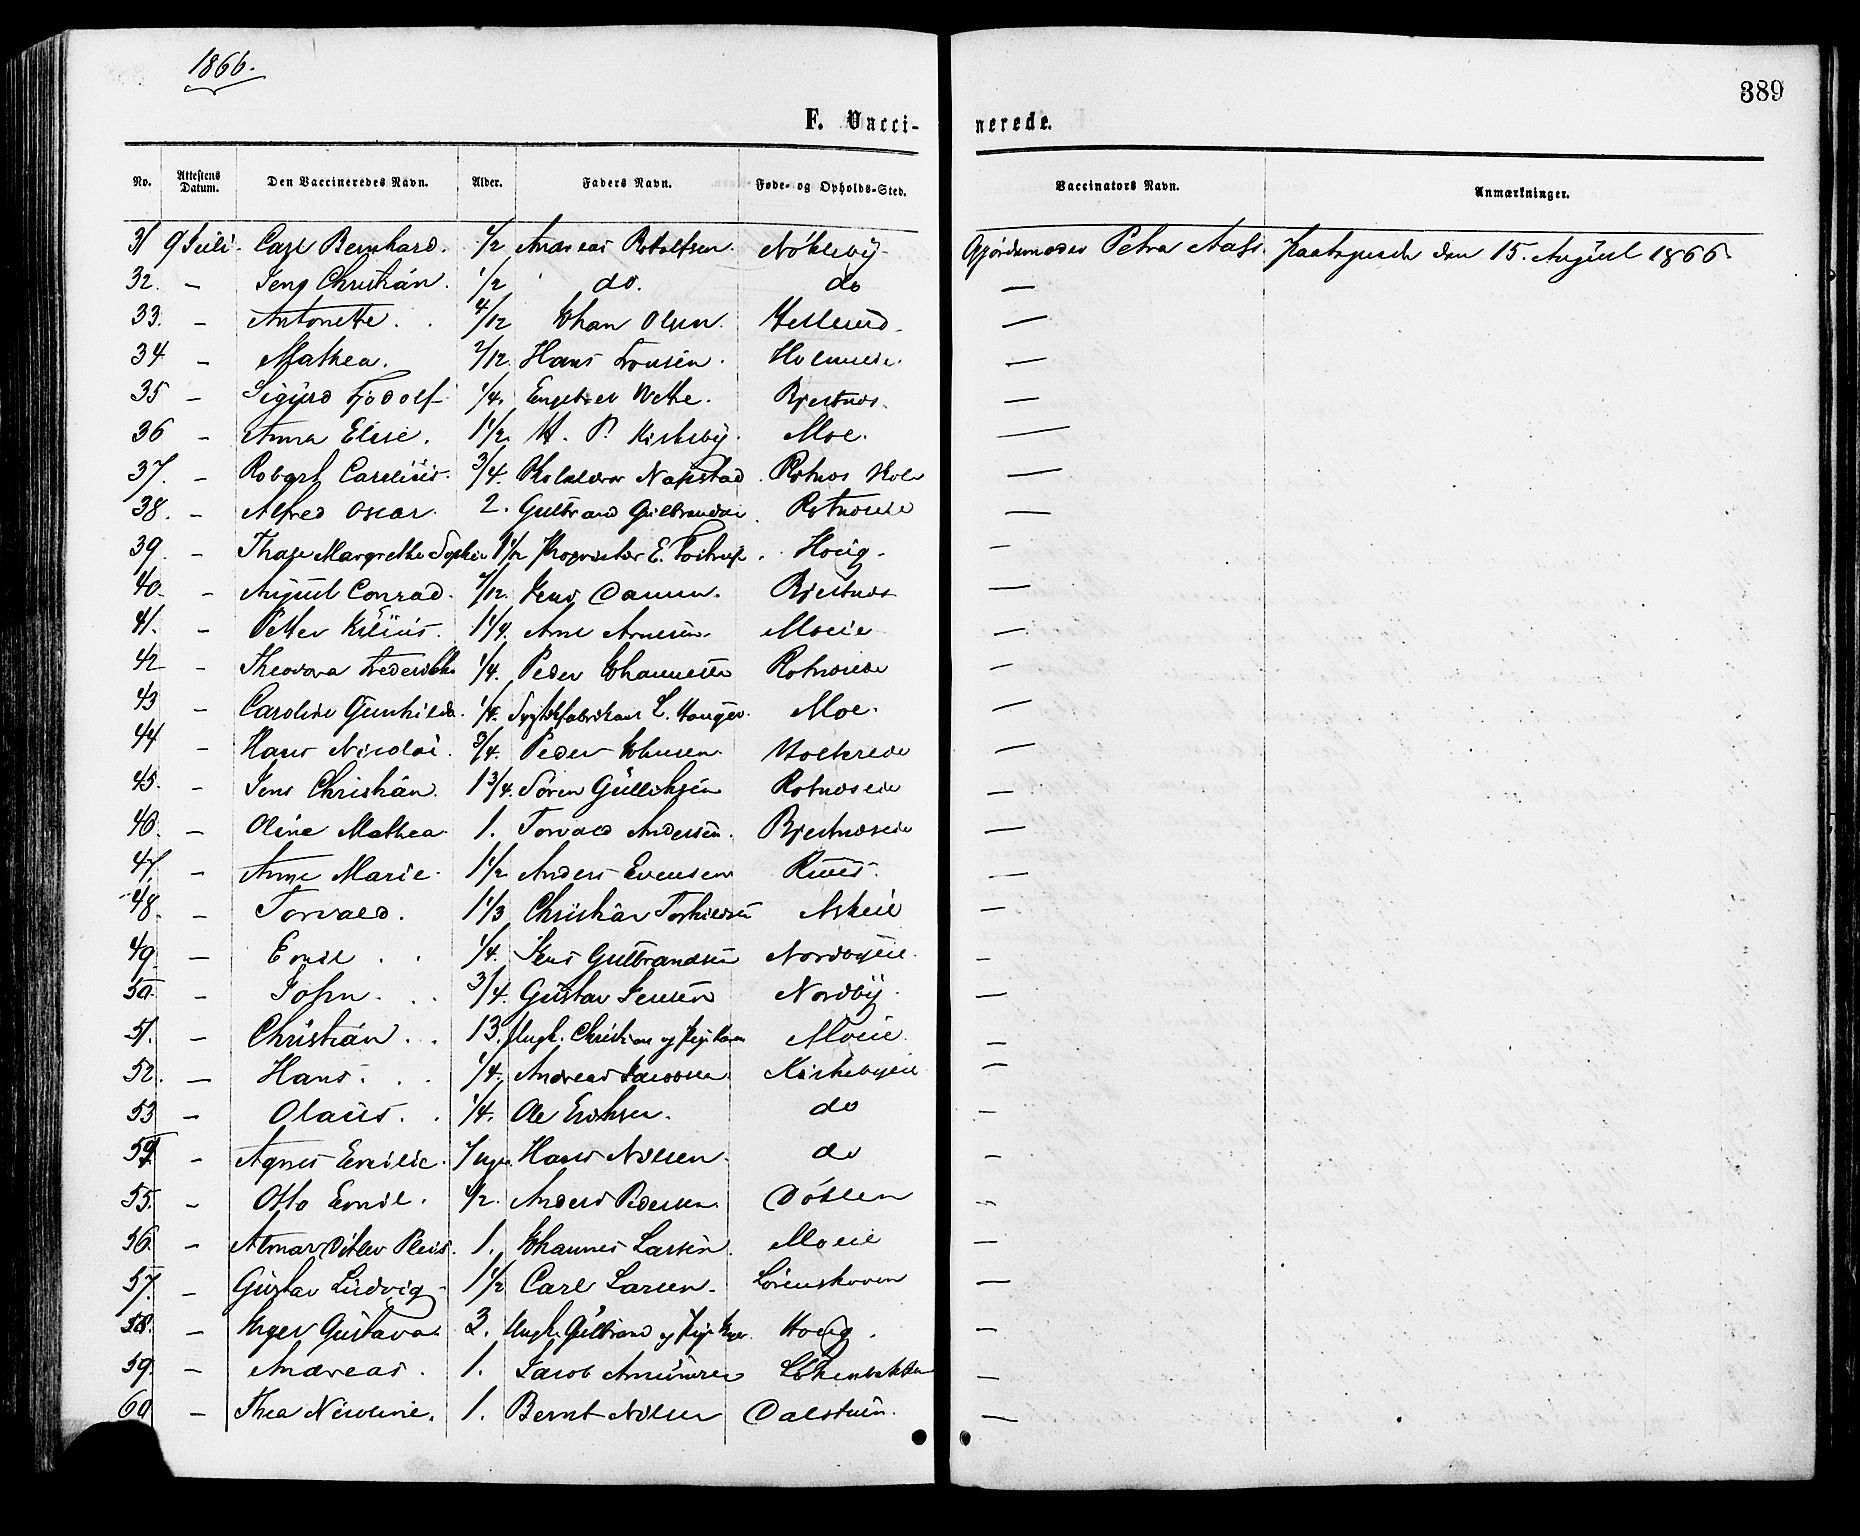 1866.
389
F. Vacci- nerede.
No. Attestens Datum. Den Vaccineredes Navn. Alder. Faders Navn. Føde- og Opholds-Sted. Vaccinators Navn. Anmærkninger.
31 9 Juli. Carl Bernhard. 1/2 Andreas Nökleby Gjordemoder Petra Aass. paategnede den 15. August 1866
32. – Jens Christian. 1/2 do. do —
33. – Antonette. 4/12 Johan Olsen. —
34 – Mathea. 7/12 Hans —
35 – Sigurd Tjodolf 1/4. Engebret Bjertnæs. —
36 – Anna Elise. 1 1/2. H. P. Kirkeby. Moe. —
37. – Robert 3/4. Rotnæs —
38. – Alfred Oscar. 2. Gulbrand Gulbrandsen. Rotnæseie —
39. – Margrethe Sophie 1 1/12 Proprietær E. Houg. —
40. – August Conrad. 7/12. Jens Bjertnæs —
41. – Petter Julius. 1 1/4. Arne Arnesen. Moeie —
42 – Theodora Frederikke 1/4. Peder Johannesen Rotnæseie —
43 – Caroline Gunhilda. 1/4. L. Moe. —
44 – Hans Nicolai. 3/4. Peder Johnsen. —
45. – Jens Christian. 1 3/4. Sören Gulliksen Rotnæseie —
46. – Oline Mathea. 1. Torvald Andersen. Bjertnæseie —
47. – Anne Marie. 1 1/2 Anders Evensen Ruud. —
48. – Torvald. 1 1/3 Christian Torkildsen Askeie —
49. – Emil. 1/4. Jens Gulbrandsen Nordbyeie. —
50. – John. 3/4. Gustav Jensen Nordby. —
51. – Christian. 13. Ungk. Christian og Pige Karen Moeie. —
52. – Hans. 1/4. Andreas Jacobsen Kirkebyeie —
53 – Olaus. 1/4. Ole Eriksen. do —
54 – Agnes Emilie. 7 uger Hans Nilsen. do —
55. – Otto Emil. 1/2. Anders Pedersen Dóhlen —
56. – Ditlev 1. Johannes Larsen. Moeie —
57. – Gustav Ludvig 1 1/2 Carl Larsen. Lörenskoven —
58. – Inger Gustava. 3. Ungk. Gulbrand og Pige Inger. Houg. —
59. – Andreas. 1. Jacob Amundsen —
60 – Thea Nicoline. 1. Bernt Nilsen Dalstuen. —